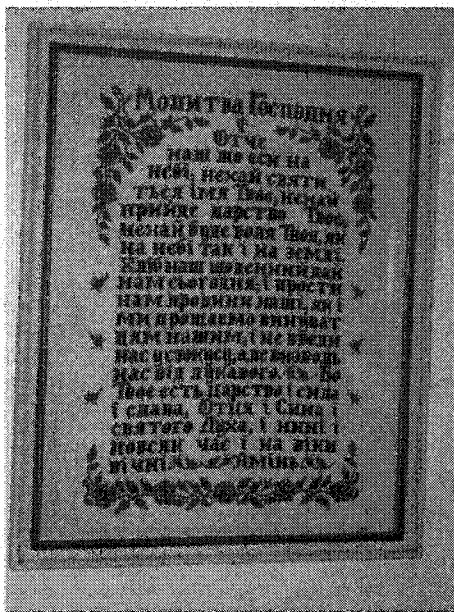 Молитва Господня
Отче
наш що єси на
небі, нехай святи
ться імя Твоє, нехай
прийде царство Твоє,
нехай буде воля Твоя, як
на небі так і на землі.
Хліб наш щоденний дай
нам сьогодні, і прости
нам провини наші, як і
ми прощаємо винуват
цям нашим, і не введи
нас у спокусу, але визволь
нас від лукавого. Бо
Твоє єсть Царство і сила
і слава, Отця і Сина і
святого Духа, і нині і
повсяк час і на віки
вічні Амінь